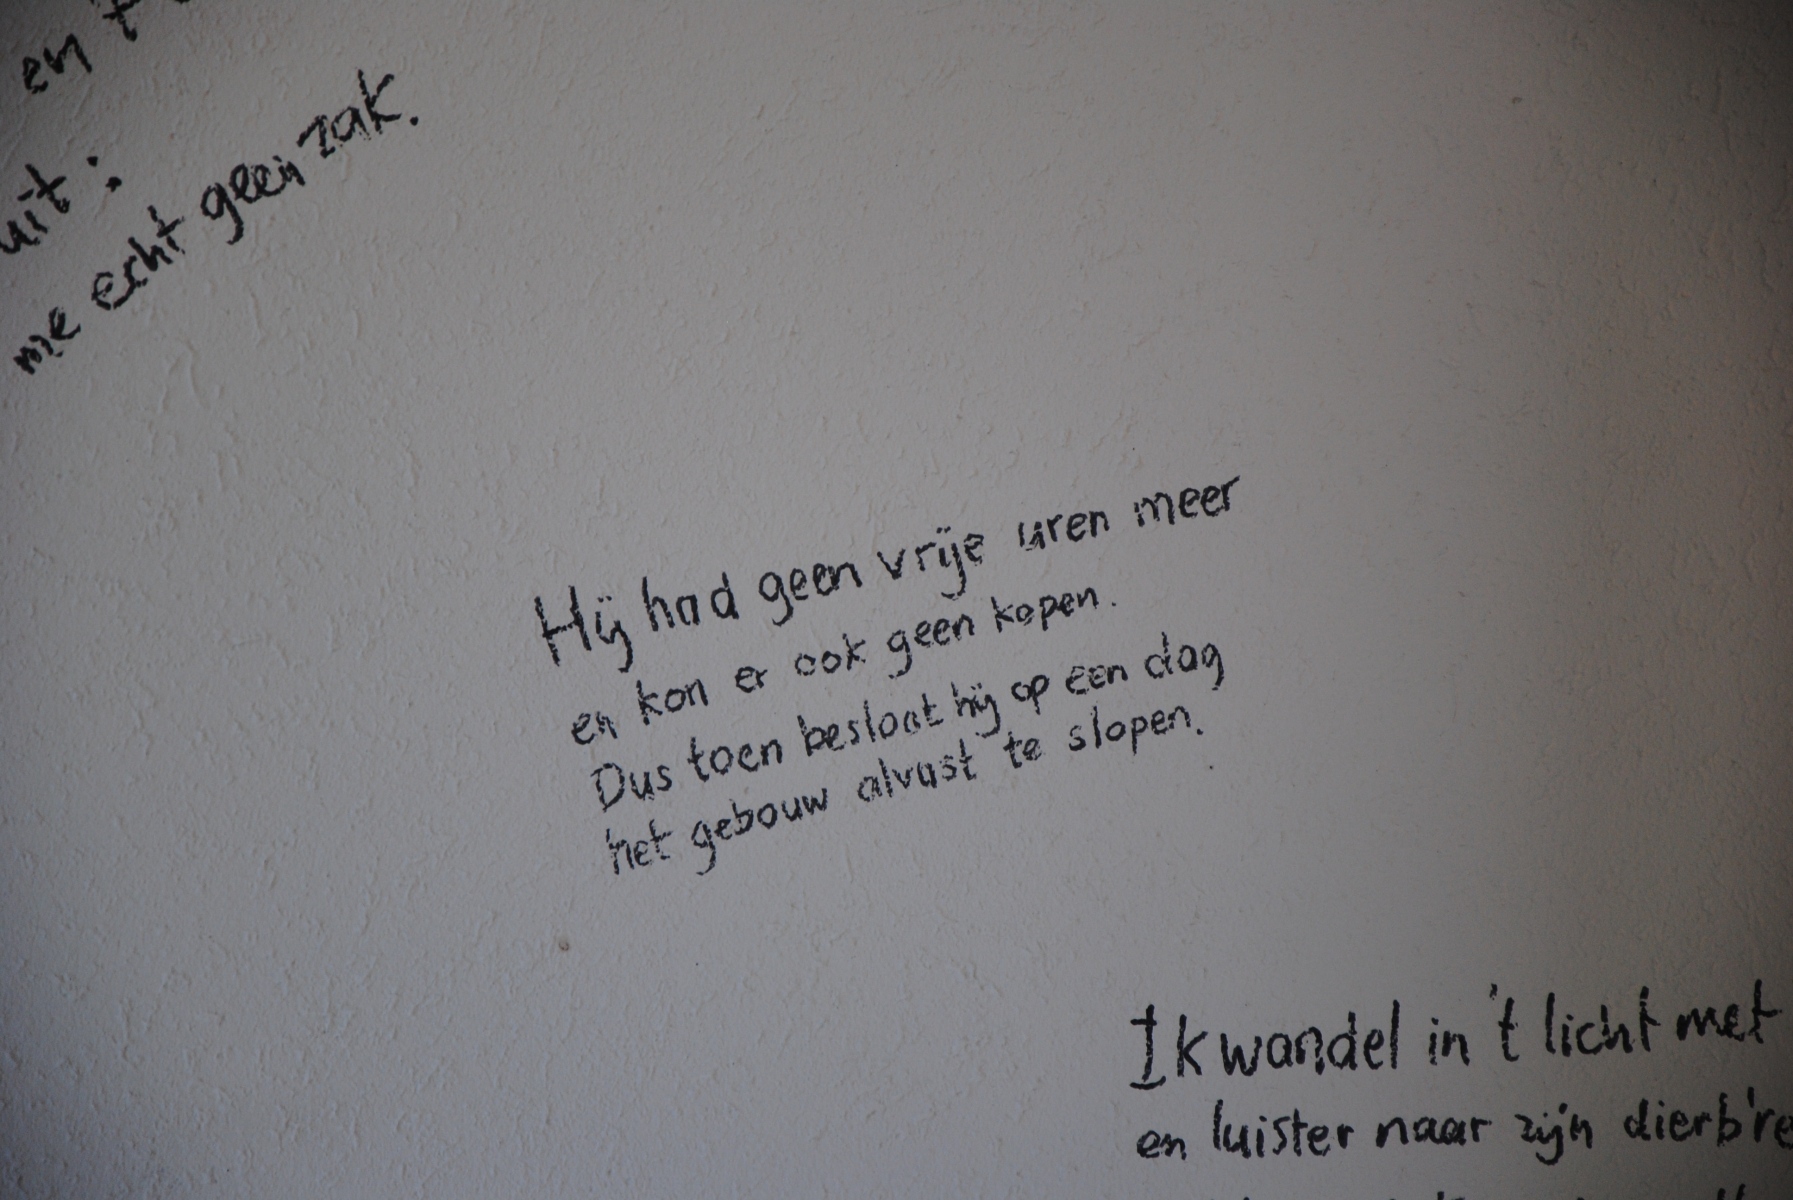 en
uit:
me echt geen zak.
Hij had geen vrije uren meer
en kon er ook geen kopen.
Dus toen besloot hij op een dag
het gebouw alvast te slopen.
Ik wandel in 't licht met
en luister naar zijn dierb're